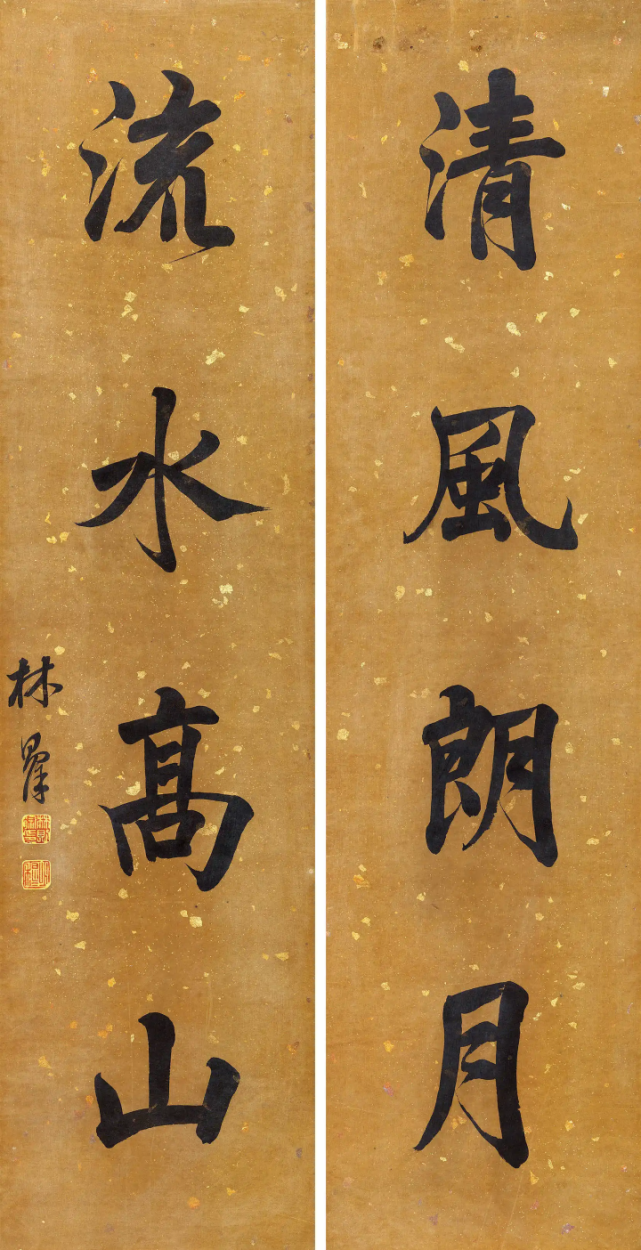 清風朗月
流水高山
林